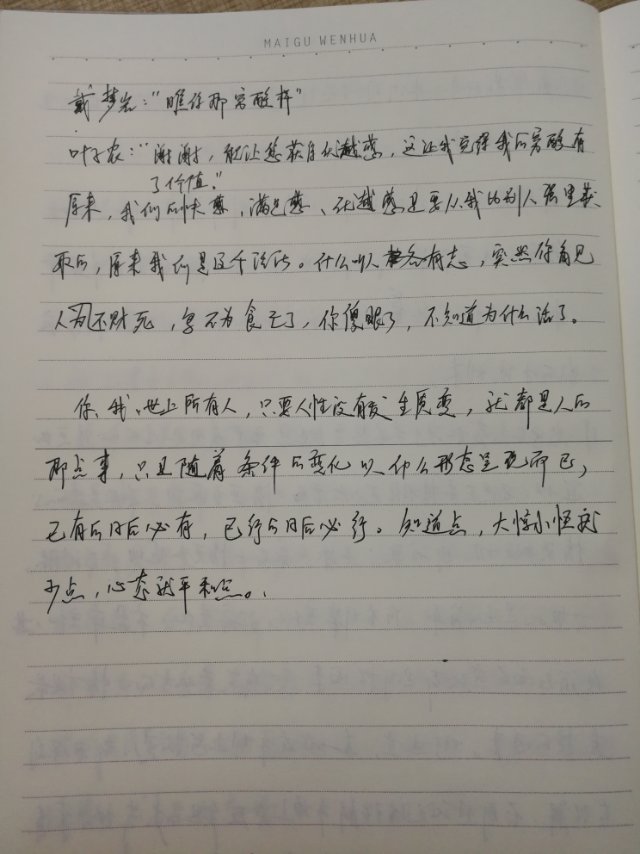 MAIGU WENHUA
戴梦岩：“瞧你那穷酸样”
叶子农：“谢谢，能让您获得优越感，这让我觉得我的穷酸有
了价值。”
原来，我们的快感，满足感、优越感是要从我比别人强里获
取的，原来我们是这个活法。什么叫人各有志，突然你看见
人为不财死，鸟不为食亡了，你傻眼了，不知道为什么活了。
你、我、世上所有人，只要人性没有发生质变，就都是人的
那点事，只是随着条件的变化以什么形态呈现而已，
已有的日后必有，已行的日后必行。知道点，大惊小怪就
少点，心态就平和点。